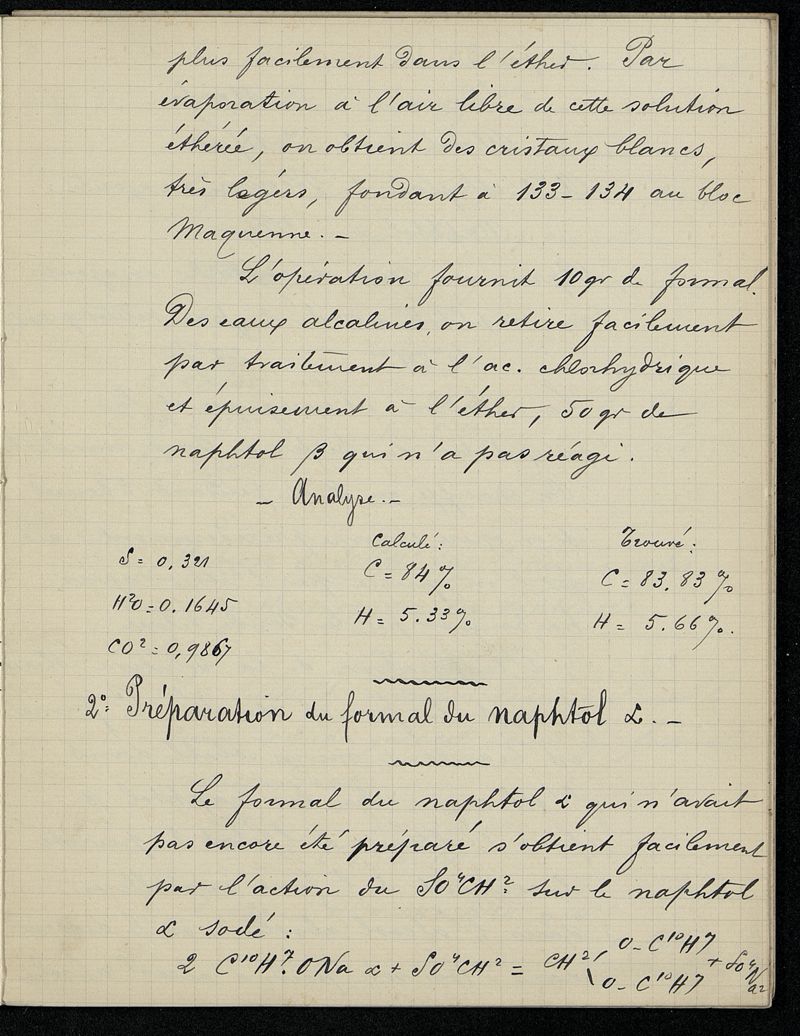 plus facilement dans l'éther. Par
évaporation à l'air libre de cette solution
éthérée, on obtient des cristaux blancs,
très légers, fondant à 133-134 au bloc
Maquenne. -
L'opération fournit 10gr de formal.
Des eaux alcalines, on retire facilement
par traitement à l'ac. chlorhydrique
et épuisement à l'éther, 50gr de
naphtol β qui n'a pas réagi.
- Analyse. -
S = 0,321
H²O = 0.1645
CO² = 0,9867
Calculé:
C = 84%
H = 5.33%
Trouvé:
C = 83.83%
H = 5.66%.
2°: Préparation du formal du naphtol α. -
Le formal du naphtol α qui n'avait
pas encore été préparé s'obtient facilement
par l'action du SO⁴CH² sur le naphtol
α sodé :
2 C¹⁰H⁷.ONa α + SO⁴CH² = CH² O-C¹⁰H7 + SO⁴Na²
O-C¹⁰H7